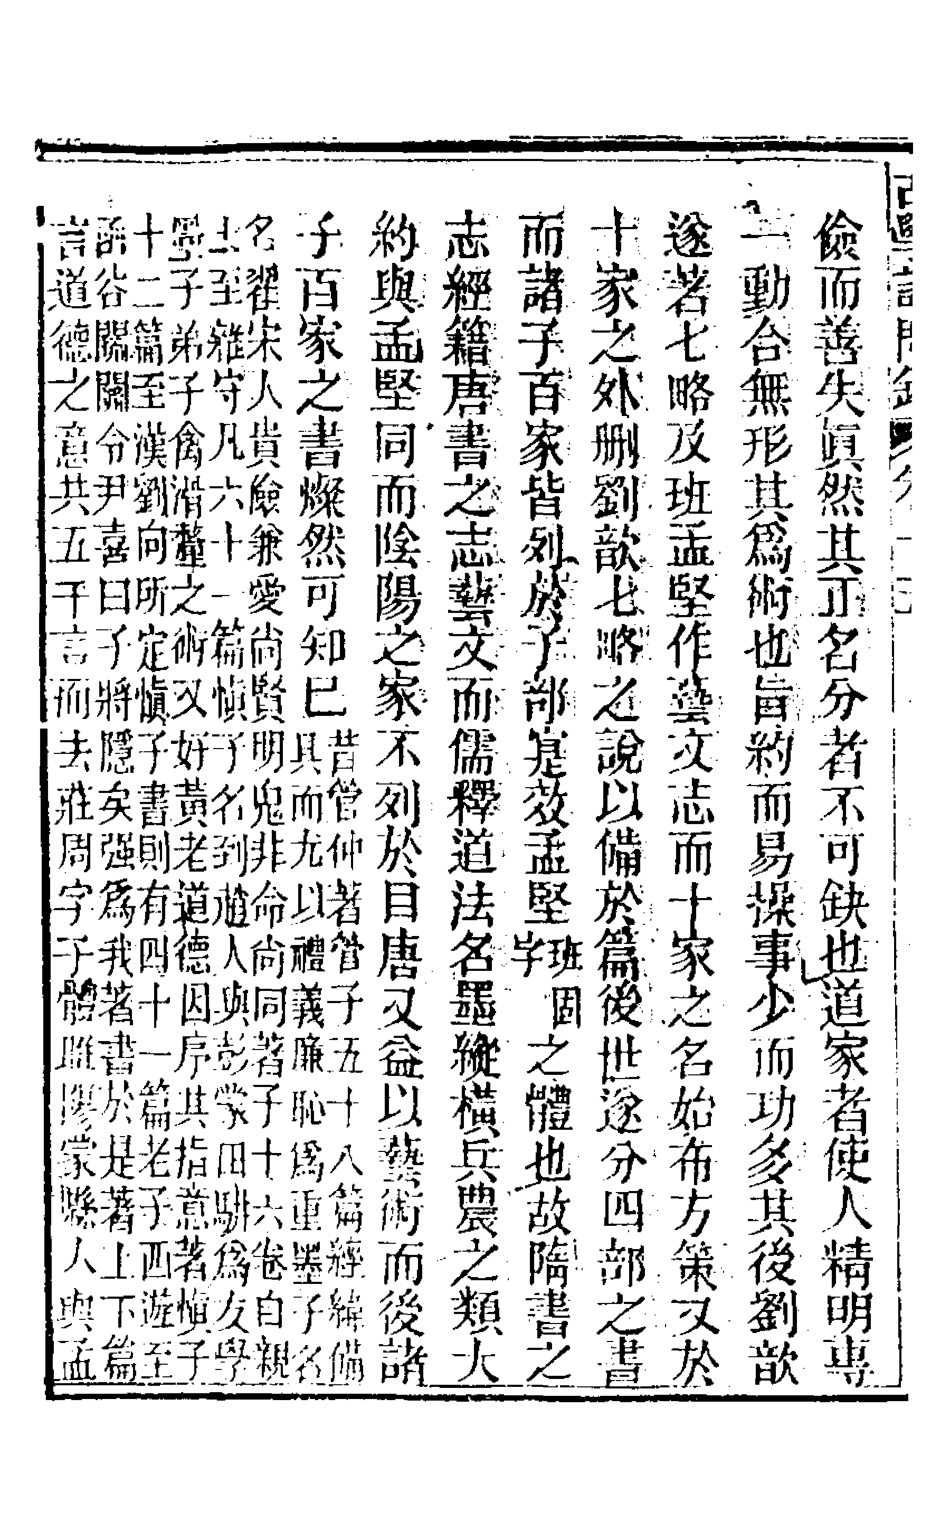 儉而善失眞然其正名分者不可缺也道家者使人精明専
一動合無形其爲術也旨約而易操事少而功多其後劉歆
遂著七略及班孟堅作藝文志而十家之名始布方策又於
十家之外刪劉歆七略之說以備於篇後世遂分四部之書
而諸子百家皆列於子部寔效孟堅班固字之體也故隋書之
志經籍唐書之志藝文而儒釋道法名墨縱橫兵農之類大
約與孟堅同而陰陽之家不列於目唐又益以藝術而後諸
子百家之書燦然可知已
昔管仲著管子五十八篇經緯備
具而尤以禮義廉恥爲重墨子名
名翟宋人貴儉兼愛尚賢明鬼非命尚同著子十六卷自親
士至雜守凡六十一篇愼子名到趙人與彭蒙田駢爲友學
墨子弟子禽滑釐之術又好黃老道德因序其指意著愼子
十二篇至漢劉向所定愼子書則有四十一篇老子西遊至
函谷關關令尹喜曰子將隱矣强爲我著書於是著上下篇
言道德之意共五千言而去莊周字子體睢陽蒙縣人與孟